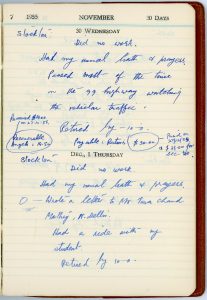 7 1955 NOVEMBER 30 DAYS
30 WEDNESDAY
Stockton
Did no work.
Had my usual bath & prayers.
Passed most of the time
in the 99 highway watching
the vehicular traffic.
Retired by 10-0.
Payable: Return $30.00
Paid on
for
DEC, 1 THURSDAY
Stockton
Did no work.
Had my usual bath & prayers.
Wrote a letter to Mr Tara Chand
N. Delhi.
Had a ride with my
student.
Retired by 10-0.